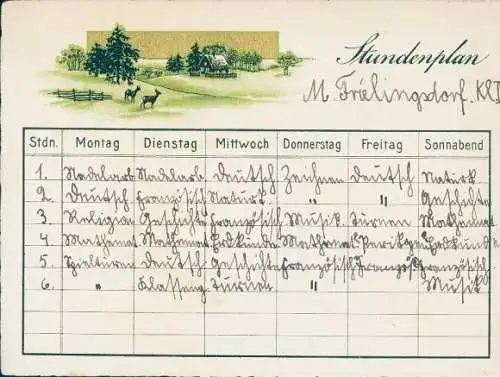 Stundenplan
M. Frielingsdorf. Kl.
Stdn. Montag Dienstag Mittwoch Donnerstag Freitag Sonnabend
1. Nadelarb Nadelarb Deutsch Zeichnen Deutsch Naturk.
2. Deutsch Französisch Naturk. " " Geschichte
3. Religion Geschichte Französisch Musik. Turnen Mathemat
4. Mathemat Mathemat Erdkunde Mathemat Erdkunde
5. Spielturnen Deutsch Geschichte Französisch Französisch Französisch
6. " Klasseng. Turnen " Musik